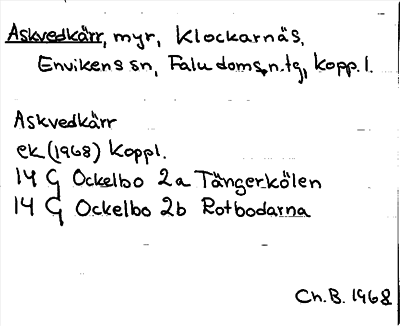 Askvedkärr, myr, Klockarnäs,
Envikens sn, Falu doms. n. tg, Kopp. l.
Askvedkärr
ek (1968) Koppl.
14 G Ockelbo 2a Tängerkölen
14 G Ockelbo 2b Rotbodarna
Ch. B. 1968